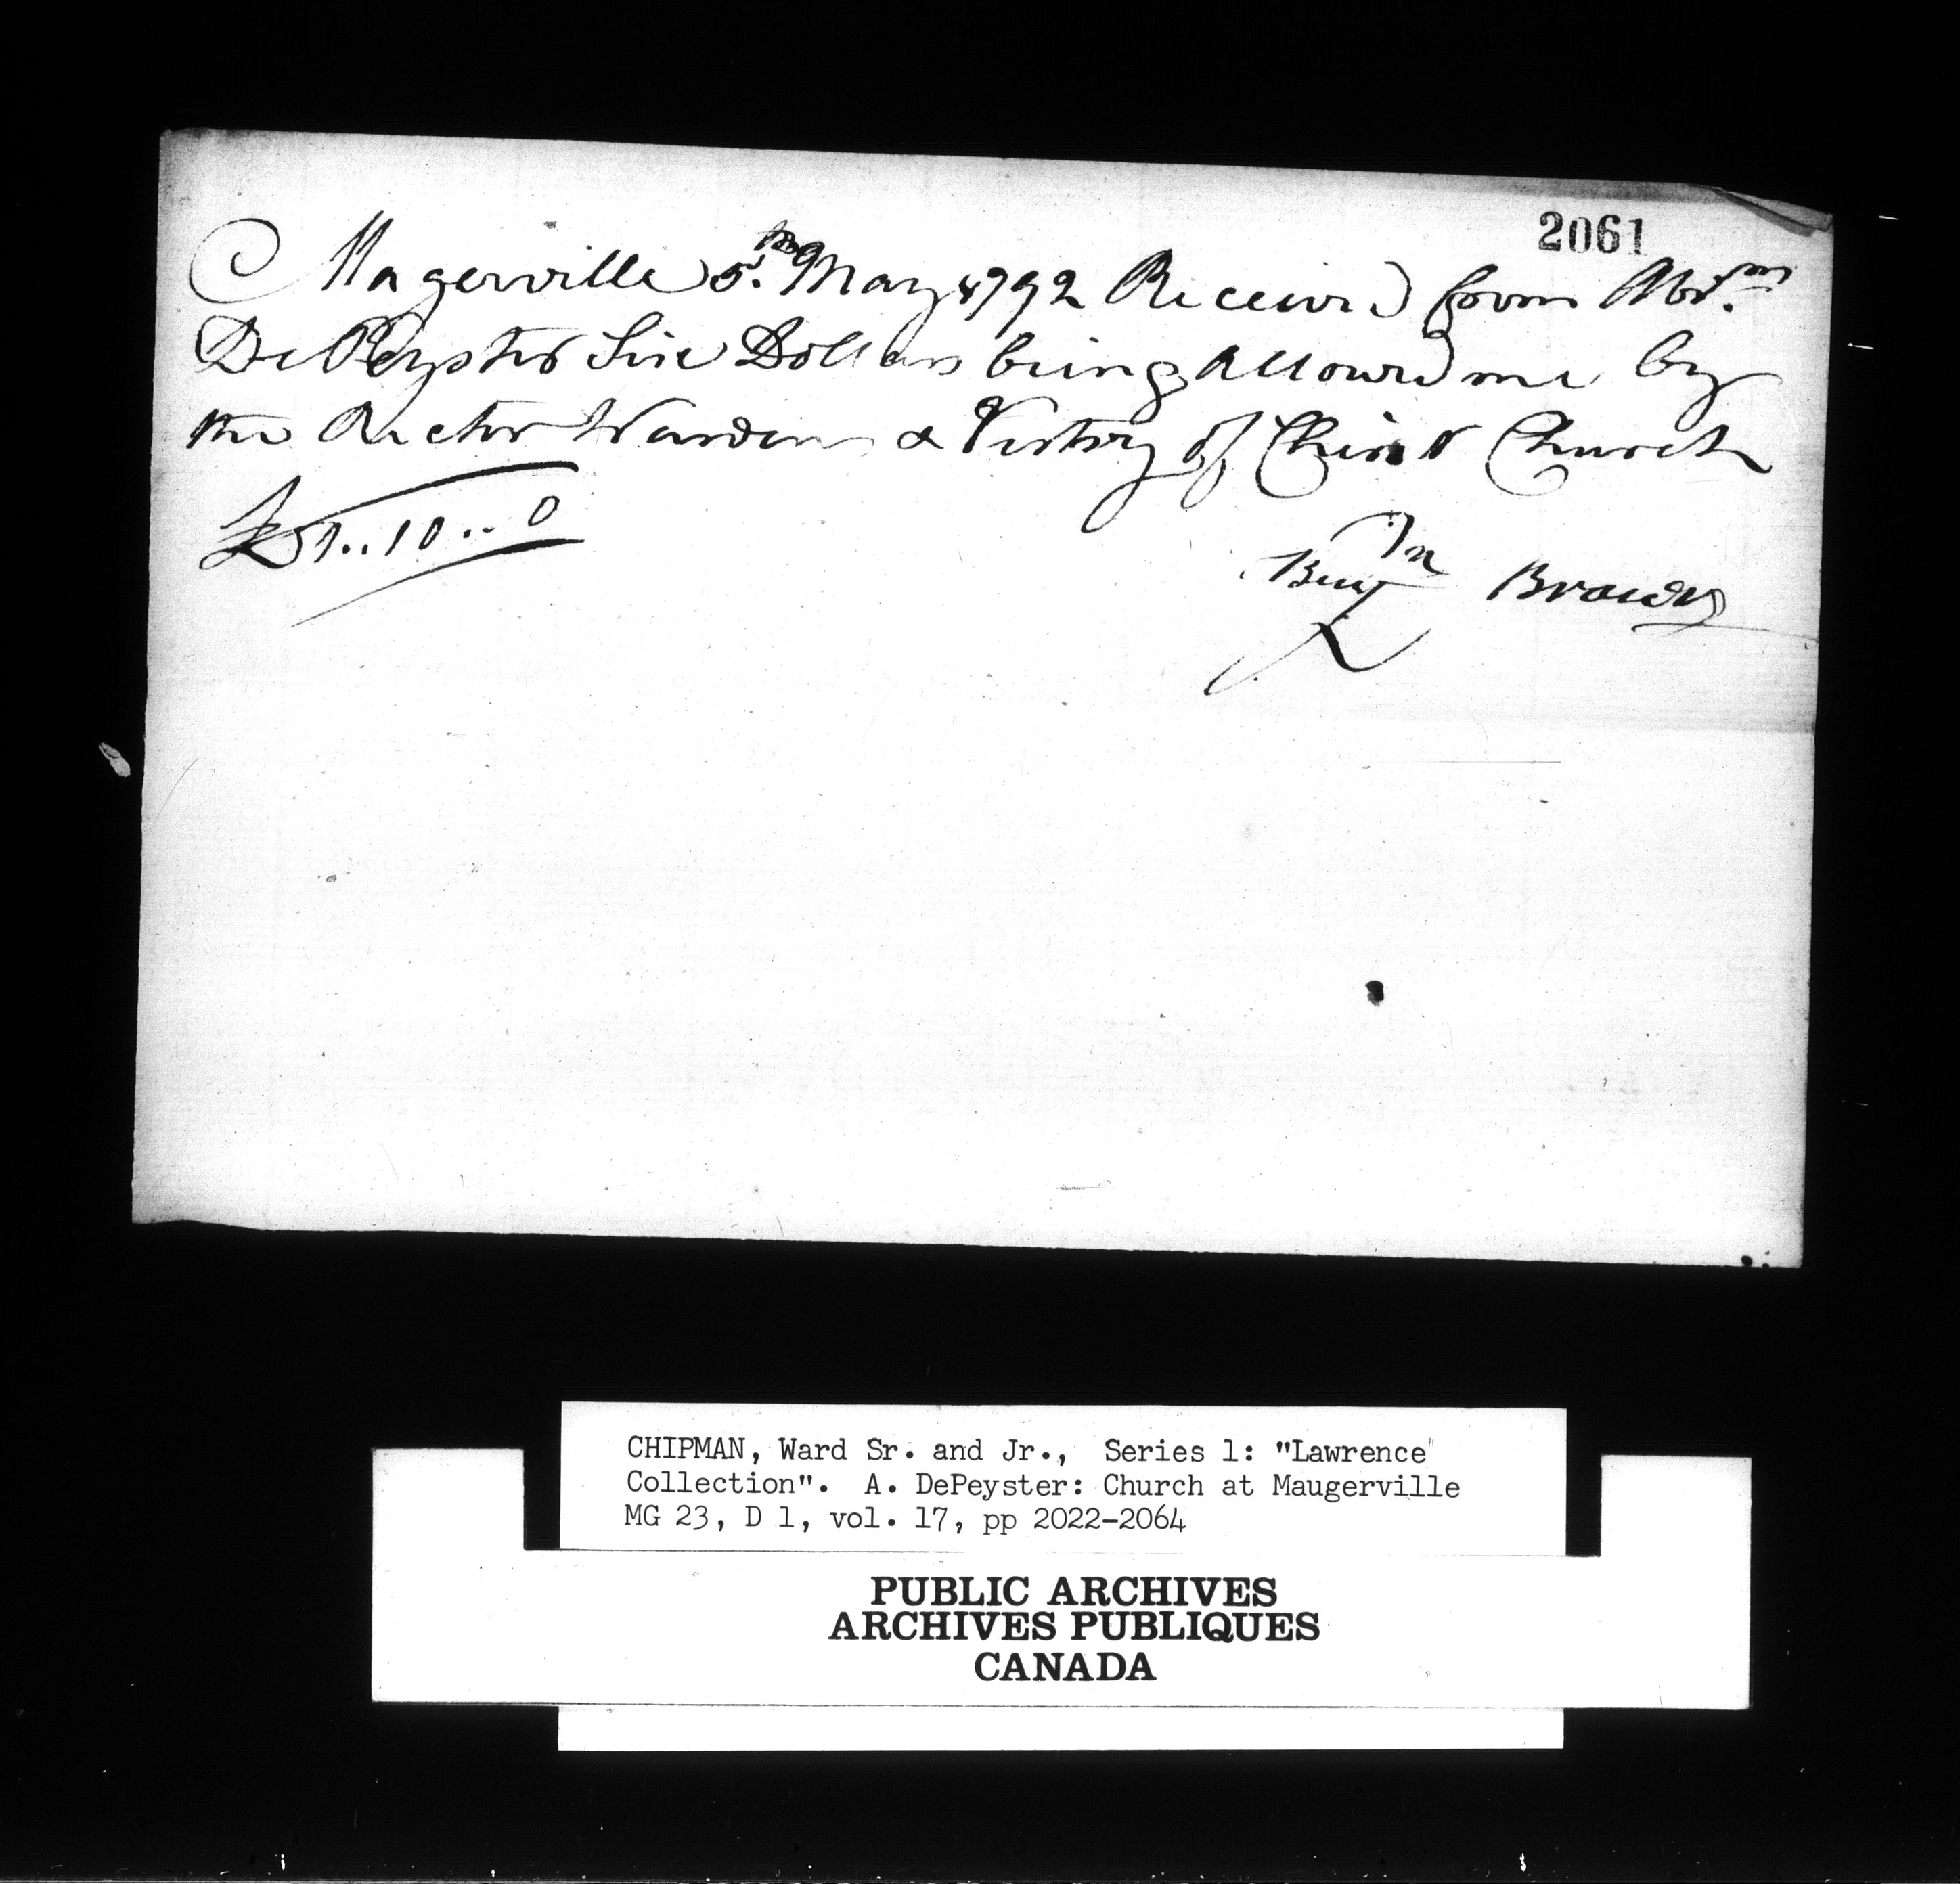 2061
Magerville 5.th May 1792 Received from Abr.m
De Peyster Six Dollars being allowed me by
the Rector Wardens & Vestry of Christ Church
£1..10..0
Benjn Brown
CHIPMAN, Ward Sr. and Jr., Series 1: "Lawrence
Collection". A. DePeyster: Church at Maugerville
MG 23, D 1, vol. 17, pp 2022-2064
PUBLIC ARCHIVES
ARCHIVES PUBLIQUES
CANADA